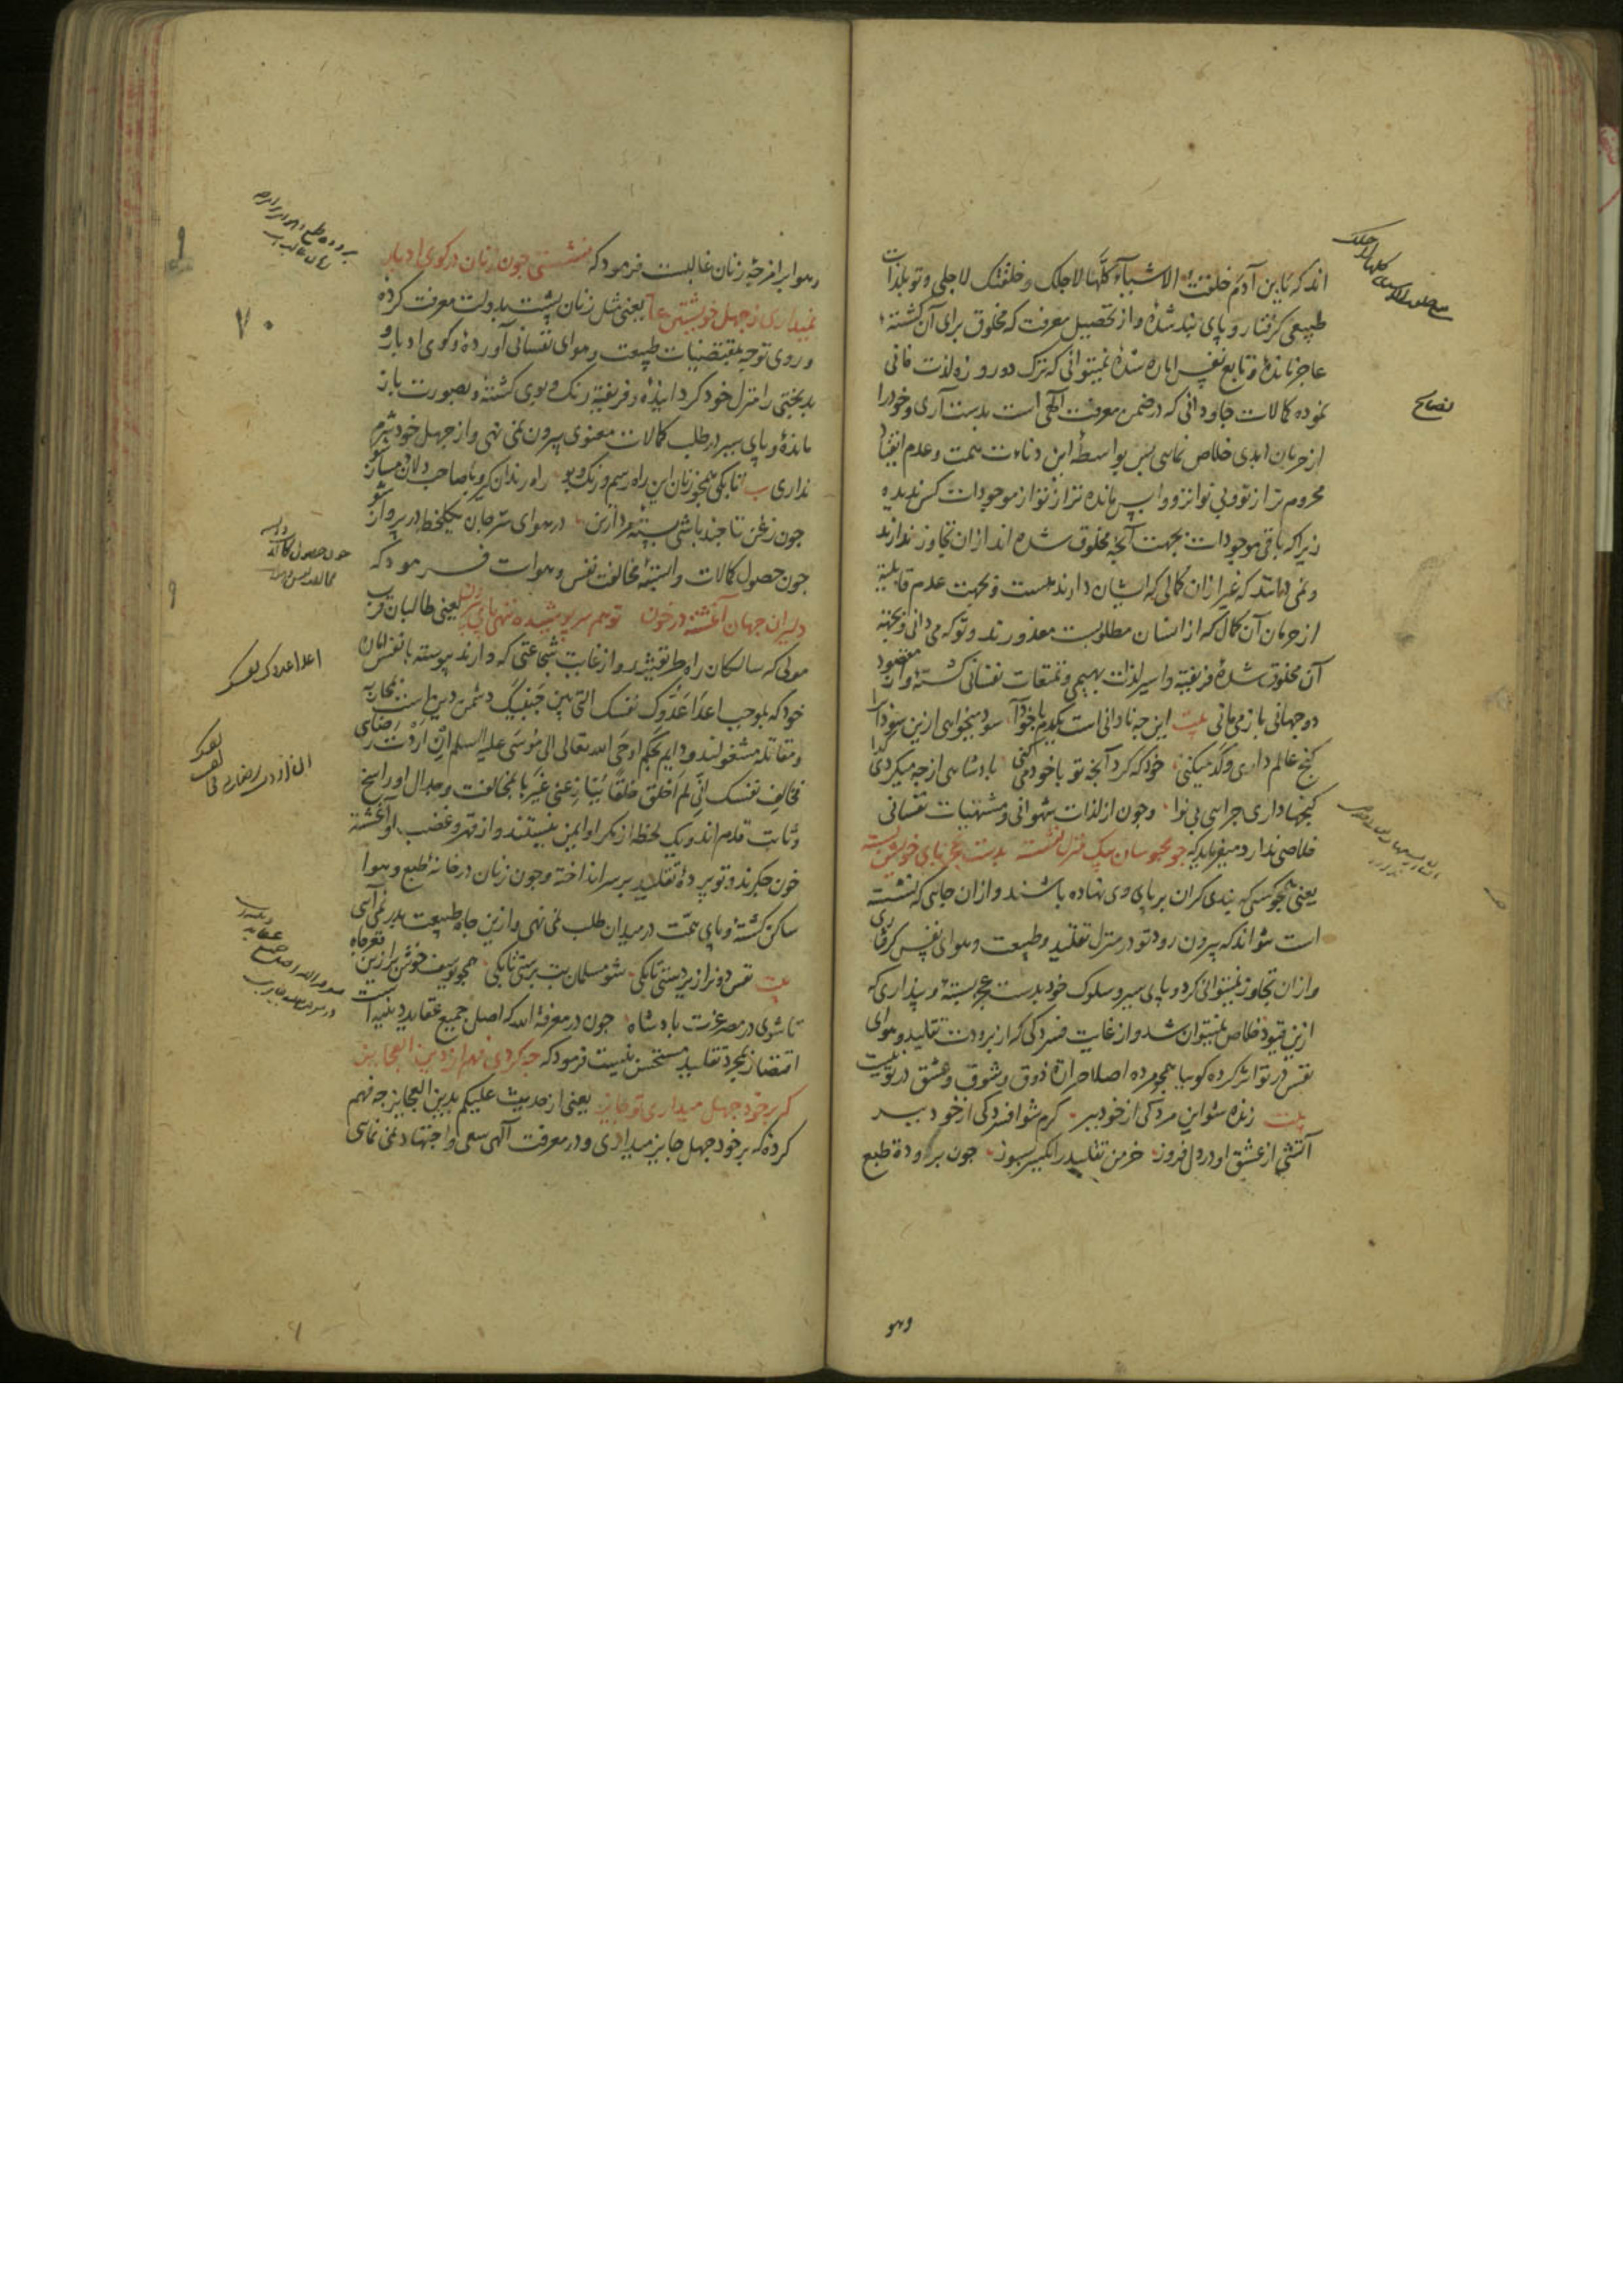 اند که یابن آدم خلقت الاشیاء کلها لاجلک و خلقتک لاجلی و تو بلذات
طبیعی کرفتار و پای بند شدهٔ و از تحصیل معرفت که مخلوق برای آن کشتهٔ
عاجز ماندهٔ و تابع نفس اماره شدهٔ نمیتوانی که ترک دو روزه لذات فانی
نموده کمالات جاودانی که در ضمن معرفت الهی است بدست آری و خود را
از حرمان ابدی خلاص نمایی پس بواسطهٔ این دناءت همت و عدم انقیاد
محروم تر از تو و بی نواتر و واپس مانده تر از تو از موجودات کس ندیده
زیرا که باقی موجودات بجهت آنچه مخلوق شده اند از ان تجاوز ندارند
و نمی دانند که غیر از ان کمالی که ایشان دارند هست و بجهت عدم قابلیه
از حرمان آن کمال که از انسان مطلوبست معذورند و تو که می دانی و بجهه
آن مخلوق شدهٔ فریفته و اسیر لذات بهیمی و تمتعات نفسانی کشتهٔ و از مقصود
دو جهانی باز می مانی بیت این چه نادانی است یکدم با خود آ سود میخواهی ازین سودا
کنج عالم داری و کد میکنی خود که کرد آنچه تو با خود می کنی پادشاهی از چه میکردی کدا
کنجها داری چرایی بی نوا وچون از لذات شهوانی و مشتهیات نفسانی
خلاصی ندارد میفرماید که چو محبوسان بیک منزل نشسته بدست عجز پای خویش بسته
یعنی همچو کسی که بندی کران بر پای وی نهاده باشند و از ان جایی که نشسته
است نتواند که بیرون رود تو در منزل تقلید و طبیعت و هوای نفس کرفتاری
و از ان تجاوز نمیتوانی کرد و پای سیر و سلوک خود بدست عجز بستهٔ و پنداری که
ازین قیود خلاص نمیتوان شد و از غایت فسردکی که از برودت تقلید و هوای
نفس در تو اثر کرده کوییا همچو مرده اصلا حرارة ذوق و شوق و عشق در تو نیست
بیت زنده شو این مردکی از خود ببر کرم شو افسردکی از خود ببر
آتشی از عشق او در دل فروز خرمن تقلید را یکسر بسوز چون برودة طبع
وهو
نصایح
و هوا بر امزجهٔ زنان غالبست فرمود که نشستی چون زنان در کوی ادبار
نمیداری ز جهل خویشتن عار یعنی مثل زنان پشت بدولت معرفت کرده
و روی توجه بمقتضیات طبیعت و هوای نفسانی آوردهٔ و کوی ادبار و
بدبختی را منزل خود کردانیدهٔ و فریفتهٔ رنک و بوی کشتهٔ و بصورت باز
ماندهٔ و پای سیر در طلب کمالات معنوی بیرون نمی نهی و از جهل خود شرم
نداری ب تا بکی همچو زنان این راه و رسم و رنک و بو راه رندان کیر و با صاحب دلان دمساز شو
چون زغن تا چند باشی بستهٔ مردار تن در هوای سیر جان یکلحظه در پرواز شو
چون حصول کمالات وابستهٔ مخالفت نفس و هواست فرمود که
دلیران جهان آغشته در خون تو هم سر پوشیده ننهی پای بیرون یعنی طالبان قرب
مولی که سالکان راه طریقتند و از غایت شجاعتی که دارند پیوسته با نفس امان
خود که بموجب اعدا عدوک نفسک التی بین جنبیک دشمن دین است بمحاربه
و مقاتله مشغولند و دایم بحکم اوحی الله تعالی الی موسی علیه السلم ان اردت رضای
فخالف نفسک انی لم اخلق خلقا ینازعنی غیرها بمخالفت و جدال او راسخ
و ثابت قدم اند و یک لحظه از مکر او ایمن نیستند و از قهر و غضب او آغشته
خون جکرند و تو پردهٔ تقلید بر سر انداخته و چون زنان در خانهٔ طبع و هوا
ساکن کشتهٔ و پای همت در میدان طلب نمی نهی و ازین چاه طبیعت بدر نمی آیی
بیت نفس دونرا زیر دستی تا بکی شو مسلمان بت پرستی تا بکی همچو یوسف خوش برا زین قعر چاه
تا شوی در مصر عزت پادشاه چون در معرفة الله که اصل جمیع عقاید دینیه است
اقتصار بمجرد تقلید مستحسن نیست فرمود که چه کردی فهم از دین العجایز
که بر خود جهل میداری تو جایز یعنی از حدیث علیکم بدین العجایز چه فهم
کردهٔ که بر خود جهل جایز میداری و در معرفت آلهی سعی و اجتهاد نمی نمایی
۷۰
اعدا عدوک نفسک